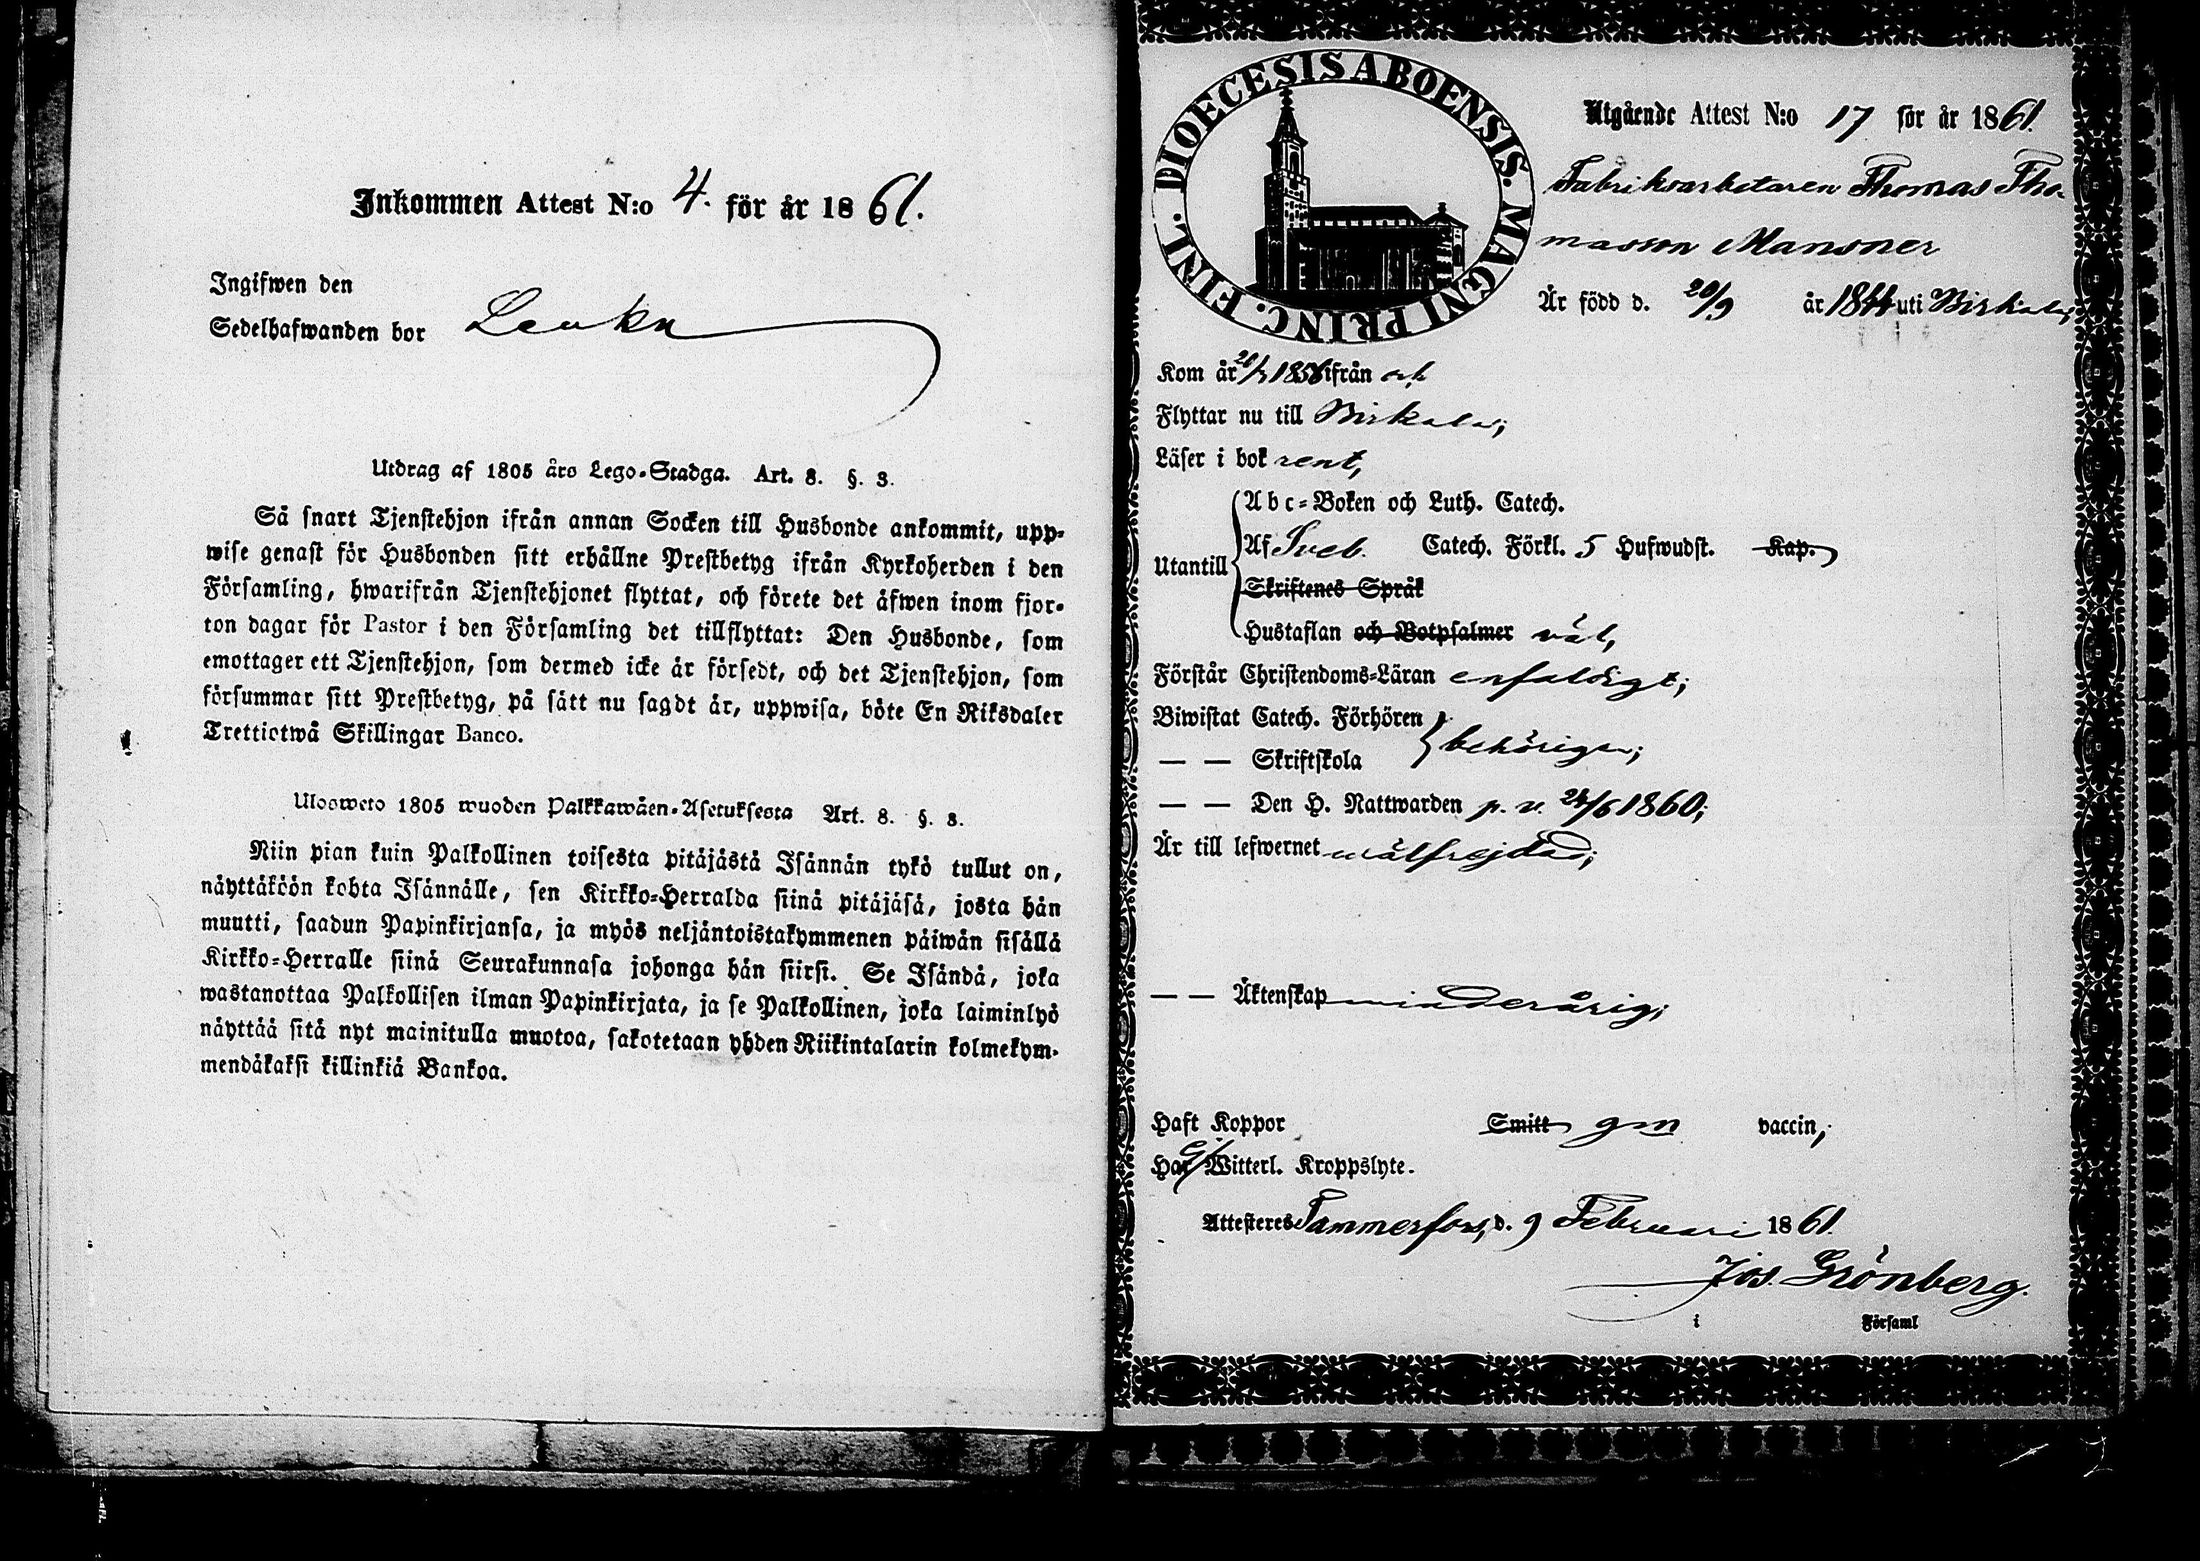 Inkommen Attest N:o 4. för år 1861.
Ingifwen den
Sedelhafwanden bor Leuku
Utdrag af 1805 års Lego-Stadga. Art. 8. §. 3.
Så snart Tjenstehjon ifrån annan Socken till Husbonde ankommit, upp-
wise genast för Husbonden sitt erhållne Prestbetyg ifrån Kyrkoherden i den
Församling, hwarifrån Tjenstehjonet flyttat, och förete det äfwen inom fjor-
ton dagar för Pastor i den Församling det tillflyttat: Den Husbonde, som
emottager ett Tjenstehjon, som dermed icke är försedt, och det Tjenstehjon, som
försummar sitt Prestbetyg, på sätt nu sagdt är, uppwisa, böte En Riksdaler
Trettiotwå Skillingar Banco.
Ulosweto 1805 wuoden Palkkawäen-Asetuksesta Art. 8. §. 3.
Niin pian kuin Palkollinen toisesta pitäjästä Isännän tykö tullut on,
näyttäköön kohta Isännälle, sen Kirkko-Herralda siinä pitäjäsä, josta hän
muutti, saadun Papinkirjansa, ja myös neljäntoistakymmenen päiwän sisällä
Kirkko-Herralle siinä Seurakunnasa johonga hän siirsi. Se Isändä, joka
wastanottaa Palkollisen ilman Papinkirjata, ja se Palkollinen, joka laiminlyö
näyttää sitä nyt mainitulla muotoa, sakotetaan yhden Riikintalarin kolmekym-
mendäkaksi killinkiä Bankoa.
DIOECESIS ABOENSIS. MAGNI PRINC. FINL.
Utgående Attest N:o 17 för år 1861.
Fabriksarbetaren Thomas Tho-
masson Mansner
Är född d. 20/9 år 1844 uti Birkala;
Kom år 1856 ifrån och
Flyttar nu till Birkala;
Läser i bok rent,
Abc-Boken och Luth. Catech.
Utantill Af Sveb. Catech. Förkl. 5 Hufwudst. Kap.
Skriftenes Språk
Hustaflan och Botpsalmer väl,
Förstår Christendoms-Läran enfaldigt;
Biwistat Catech. Förhören
behörigen;
— — Skriftskola
— — Den H. Nattwarden p. v. 24/6 1860;
Är till lefwernet wälfrejdad;
— — Äktenskap minderårig;
Haft Koppor Smitt gm vaccin,
Har Ej Witterl. Kroppslyte.
Attesteres Tammerfors, d. 9 Februari 1861.
Jos. Grönberg.
i Församl